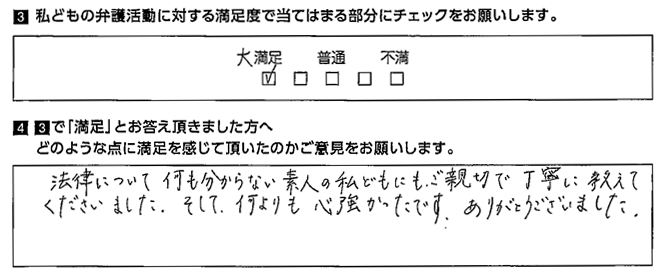 3 私どもの弁護活動に対する満足度で当てはまる部分にチェックをお願いします。
大満足 普通 不満
☑ □ □ □ □
4 3で「満足」とお答え頂きました方へ
どのような点に満足を感じて頂いたのかご意見をお願いします。
法律について何も分からない素人の私どもにもご親切で丁寧に教えて
くださいました。そして、何よりも心強かったです。ありがとうございました。